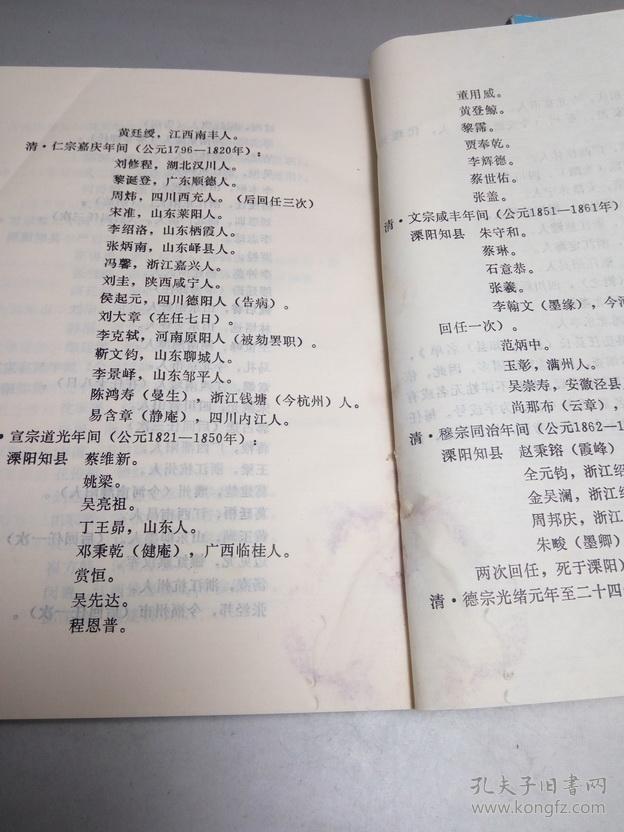 黄廷绶，江西南丰人。
清·仁宗嘉庆年间（公元1796—1820年）：
刘修程，湖北汉川人。
黎诞登，广东顺德人。
周炜，四川西充人。（后回任三次）
宋准，山东莱阳人。
李绍洛，山东栖霞人。
张炳南，山东峄县人。
冯馨，浙江嘉兴人。
刘圭，陕西咸宁人。
侯起元，四川德阳人（告病）。
刘大章（在任七日）。
李克轼，河南原阳人（被劾罢职）。
靳文钧，山东聊城人。
李景峄，山东邹平人。
陈鸿寿（曼生），浙江钱塘（今杭州）人。
易含章（静庵），四川内江人。
·宣宗道光年间（公元1821—1850年）：
溧阳知县　蔡维新。
姚梁。
吴亮祖。
丁王昴，山东人。
邓秉乾（健庵），广西临桂人。
赏恒。
吴先达。
程恩普。
董用威。
黄登鲸。
黎霈。
贾奉乾。
李辉德。
蔡世佑。
张盖。
清·文宗咸丰年间（公元1851—1861年）
溧阳知县　朱守和。
蔡琳。
石意恭。
张羲。
李翰文（墨缘），今河
回任一次）。
范炳中。
玉彰，满州人。
吴崇寿，安徽泾县
尚那布（云章），
清·穆宗同治年间（公元1862—1
溧阳知县　赵秉镕（霞峰）
全元钧，浙江绍
金吴澜，浙江
周邦庆，浙江
朱畯（墨卿）
两次回任，死于溧阳）
清·德宗光绪元年至二十四
孔夫子旧书网
www.kongfz.com